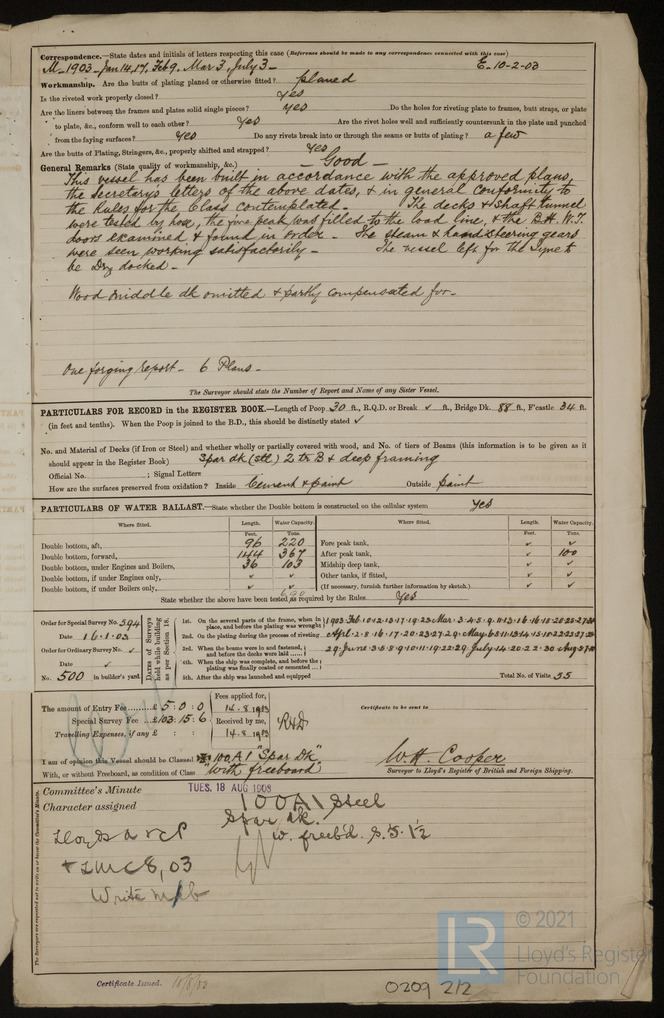 Correspondence.—State dates and initials of letters respecting this case (Reference should be made to any correspondence connected with this case)
M_1903_Jan 14, 17, Feb 9, Mar 3, July 3_ E_10-2-03
Workmanship. Are the butts of plating planed or otherwise fitted? planed
Is the riveted work properly closed? Yes
Are the liners between the frames and plates solid single pieces? Yes Do the holes for riveting plate to frames, butt straps, or plate
to plate, &c., conform well to each other? Yes Are the rivet holes well and sufficiently countersunk in the plate and punched
from the faying surfaces? Yes Do any rivets break into or through the seams or butts of plating? a few
Are the butts of Plating, Stringers, &c., properly shifted and strapped? Yes
General Remarks (State quality of workmanship, &c.) _Good_
This vessel has been built in accordance with the approved plans,
the Secretary's letters of the above dates, & in general conformity to
the Rules for the Class contemplated_ The decks & Shaft tunnel
were tested by hose, the fore peak was filled to the load line, & the B.H. W.T.
doors examined & found in order_ The steam & hand steering gears
were seen working satisfactorily_ The vessel left for the Tyne to
be Dry docked_
Wood middle dk omitted & partly compensated for_
One forging report_ 6 Plans_
The Surveyor should state the Number of Report and Name of any Sister Vessel.
PARTICULARS FOR RECORD in the REGISTER BOOK.—Length of Poop 30 ft., R.Q.D. or Break ✓ ft., Bridge Dk. 88 ft., F'castle 34 ft.
(in feet and tenths). When the Poop is joined to the B.D., this should be distinctly stated ✓
No. and Material of Decks (if Iron or Steel) and whether wholly or partially covered with wood, and No. of tiers of Beams (this information is to be given as it
should appear in the Register Book) Spar dk (stl) 2 trs B & deep framing
Official No. ; Signal Letters
How are the surfaces preserved from oxidation? Inside Cement & paint Outside paint
PARTICULARS OF WATER BALLAST.—State whether the Double bottom is constructed on the cellular system Yes
Where fitted. Length. Water Capacity. Where fitted. Length. Water Capacity.
Feet. Tons. Feet. Tons.
Double bottom, aft, 96 220 Fore peak tank, ✓ ✓
Double bottom, forward, 144 367 After peak tank, ✓ 100
Double bottom, under Engines and Boilers, 36 103 Midship deep tank, ✓ ✓
Double bottom, if under Engines only, ✓ ✓ Other tanks, if fitted, ✓ ✓
Double bottom, if under Boilers only, ✓ ✓ (If necessary, furnish further information by sketch.)
690
State whether the above have been tested as required by the Rules Yes
Order for Special Survey No. 594
Date 16.1.03
Order for Ordinary Survey No. ✓
Date ✓
No. 500 in builder's yard
Dates of Surveys held while building as per Section 18.
1st. On the several parts of the frame, when in place, and before the plating was wrought 1903 Feb. 10-12-13-17-19-23 Mar 3-4-5-9-11-13-16-18-20-25-27-30
2nd. On the plating during the process of riveting April 2-8-16-17-20-23-27-29 May 6-8-11-13-14-15-10-22-25-27-28
3rd. When the beams were in and fastened, and before the decks were laid 29 June 3-5-8-9-10-11-19-22-29 July 14-20-22-30 Aug
4th. When the ship was complete, and before the plating was finally coated or cemented
5th. After the ship was launched and equipped Total No. of Visits 55
The amount of Entry Fee £ 5 : 0 : 0 Fees applied for, 14.8.1903
Special Survey Fee £ 103 : 15 : 6 Received by me, RHD
Travelling Expenses, if any £ : : 14.8.1903
Certificate to be sent to
I am of opinion this Vessel should be Classed 100A1 "Spar Dk"
With, or without Freeboard, as condition of Class "With freeboard"
W.H. Cooper
Surveyor to Lloyd's Register of British and Foreign Shipping.
Committee's Minute TUES. 18 AUG 1903
Character assigned 100A1 Steel
Spar dk.
w. freebd. 
Lloyds a & CP
+ LMC 8,03
Write
The Surveyors are requested not to write on or below the Committee's Minute.
Certificate Issued. 18/8/03
0209 212
LR
© 2021
Lloyd's Register
Foundation